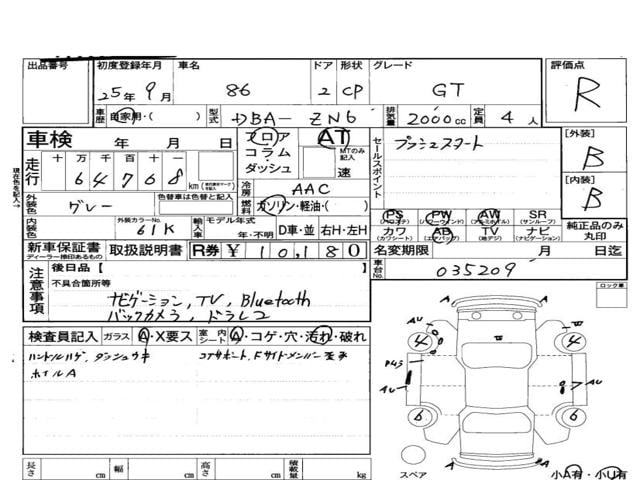 出品番号 初度登録年月 車名 ドア 形状 グレード 評価点
25年 9月 86 2 CP GT R
車歴 自家用・( ) 型式 DBA- ZN6 排気量 2000cc 定員 4人
車検 年 月 日 フロア・コラム・ダッシュ AT MTのみ記入 速
セールスポイント プッシュスタート
[外装] B
[内装] B
現在色を記入→
走行 十 万 千 百 十 一
6 4 7 6 8 km
冷房 AAC
外装色 グレー 色替車は色替と記入
燃料 ガソリン・軽油・( )
PS PW AW SR
(パワステ) (パワーウインド) (アルミホイル) (サンルーフ)
カワ AB TV ナビ
(カワシート) (エアバッグ) (地デジ) (ナビゲーション)
純正品のみ丸印
内装色 外装カラーNo. 61K 輸入車 モデル年式 年・不明 D車・並 右H・左H
新車保証書 取扱説明書 R券 ¥ 10,180 名変期限 月 日迄
ディーラー捺印あるもの
車台No. 035209
注意事項 後日品 [
不具合箇所等
ナビゲーション, TV, Bluetooth
バックカメラ, ドラレコ
ロック車
検査員記入 ガラス A・X要ス 室内シート A・コゲ・穴・汚れ・破れ
ハンドルハゲ, ダッシュウキ コアサポート, Fサイドメンバー歪み
ホイルA
A A
AU 4 4
P43
AU AU
6 6
スペア A A
小A有・小U有
長さ cm 幅 cm 高さ cm 積載量 kg